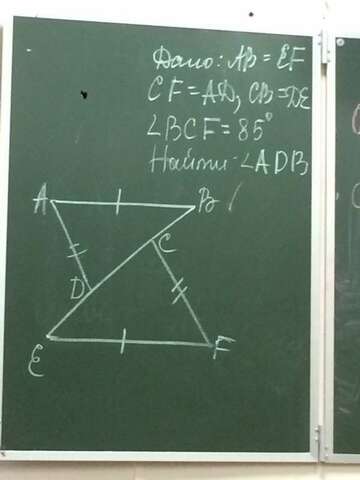 Дано: AB = EF
CF = AD, CB = DE
∠BCF = 85°
Найти: ∠ADB
A
B
C
D
E
F